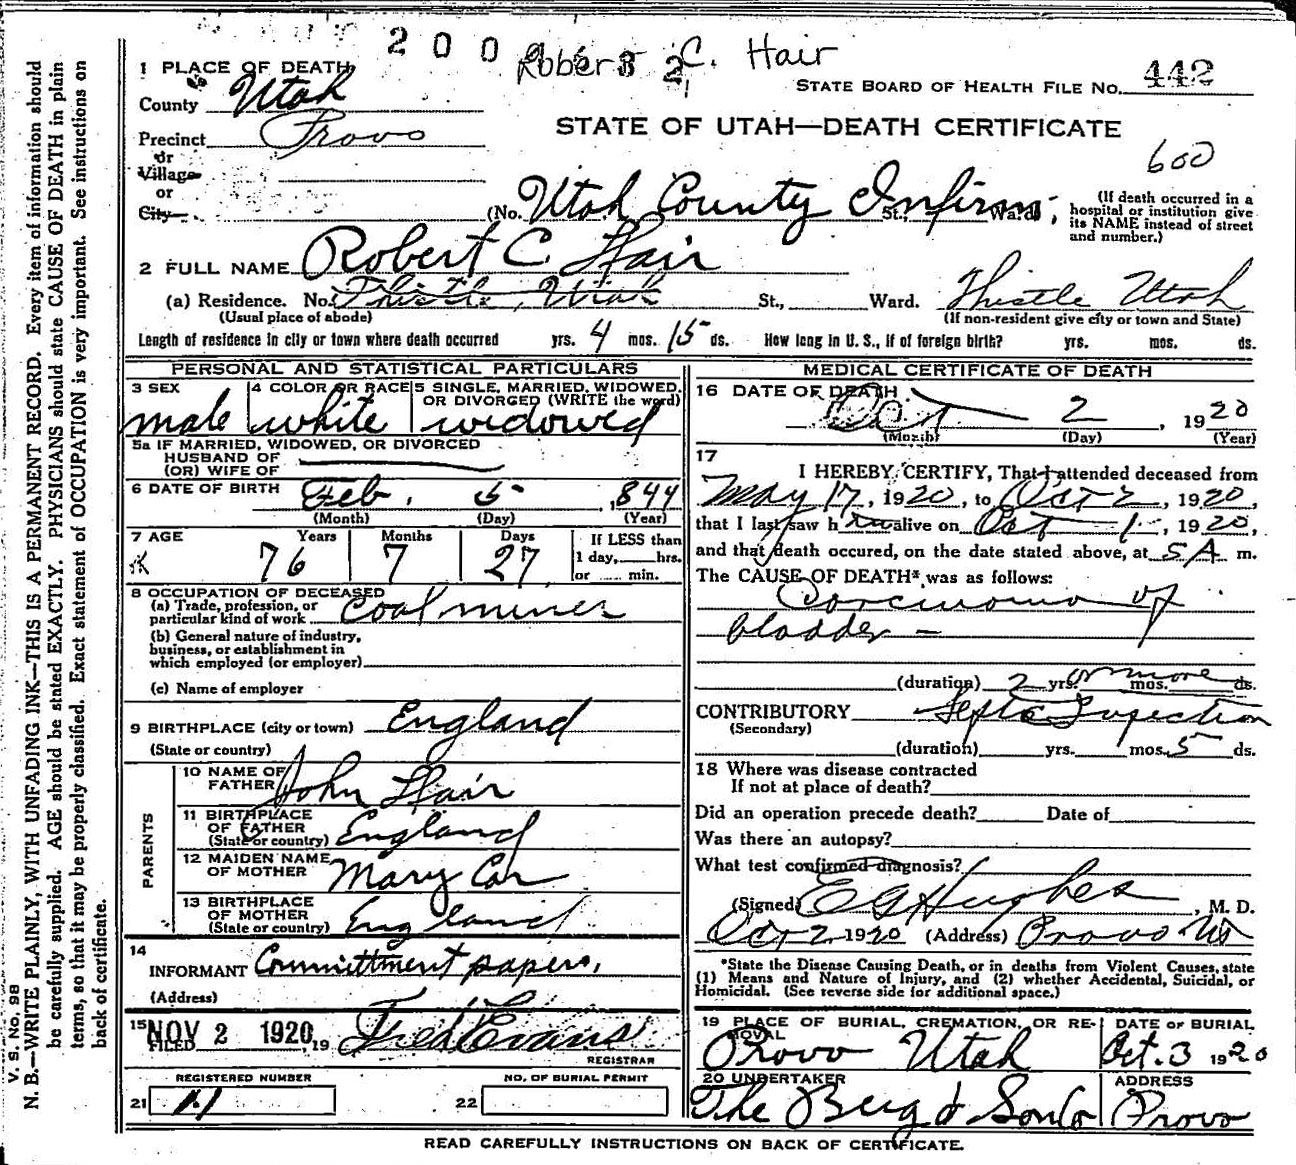 2 0 0
Robert C. Hair
STATE BOARD OF HEALTH FILE No. 442
STATE OF UTAH—DEATH CERTIFICATE
600
1 PLACE OF DEATH
County Utah
Precinct Provo
or
Village
or
City
(No. Utah County Infirm. St., Ward;
(If death occurred in a hospital or institution give its NAME instead of street and number.)
2 FULL NAME Robert C Hair
(a) Residence. No. Thistle, Utah St., Ward. Thistle Utah
(Usual place of abode) (If non-resident give city or town and State)
Length of residence in city or town where death occurred yrs. 4 mos. 15 ds. How long in U. S., if of foreign birth? yrs. mos. ds.
PERSONAL AND STATISTICAL PARTICULARS
3 SEX male
4 COLOR OR RACE white
5 SINGLE, MARRIED, WIDOWED, OR DIVORCED (WRITE the word) widowed
5a IF MARRIED, WIDOWED, OR DIVORCED
HUSBAND OF
(OR) WIFE OF
6 DATE OF BIRTH Feb. 5 , 1844
(Month) (Day) (Year)
7 AGE Years Months Days If LESS than
76 7 27 1 day, hrs.
or min.
8 OCCUPATION OF DECEASED
(a) Trade, profession, or
particular kind of work coal miner
(b) General nature of industry,
business, or establishment in
which employed (or employer)
(c) Name of employer
9 BIRTHPLACE (city or town) England
(State or country)
PARENTS
10 NAME OF FATHER John Hair
11 BIRTHPLACE OF FATHER (State or country) England
12 MAIDEN NAME OF MOTHER Mary Cor
13 BIRTHPLACE OF MOTHER (State or country) England
14
INFORMANT Committment papers,
(Address)
15 NOV 2 1920
FILED , 19 Fred Evans
REGISTRAR
REGISTERED NUMBER NO. OF BURIAL PERMIT
21 11 22
MEDICAL CERTIFICATE OF DEATH
16 DATE OF DEATH
Oct 2 , 1920
(Month) (Day) (Year)
17
I HEREBY CERTIFY, That I attended deceased from
May 17, 1920, to Oct 2, 1920,
that I last saw him alive on Oct 1, 1920,
and that death occured, on the date stated above, at 5 A m.
The CAUSE OF DEATH* was as follows:
Carcinoma of
bladder —
(duration) 2 yrs. or more mos. ds.
CONTRIBUTORY Septic Infection
(Secondary)
(duration) yrs. mos. 5 ds.
18 Where was disease contracted
If not at place of death?
Did an operation precede death? Date of
Was there an autopsy?
What test confirmed diagnosis?
(Signed) E G Hughes, M. D.
Oct 2, 1920 (Address) Provo Ut
*State the Disease Causing Death, or in deaths from Violent Causes, state
(1) Means and Nature of Injury, and (2) whether Accidental, Suicidal, or
Homicidal. (See reverse side for additional space.)
19 PLACE OF BURIAL, CREMATION, OR RE-MOVAL DATE OF BURIAL
Provo Utah Oct. 3 1920
20 UNDERTAKER ADDRESS
The Berg & Sons Co Provo
READ CAREFULLY INSTRUCTIONS ON BACK OF CERTIFICATE.
V. S. No. 98
N. B.—WRITE PLAINLY, WITH UNFADING INK—THIS IS A PERMANENT RECORD. Every item of information should
be carefully supplied. AGE should be stated EXACTLY. PHYSICIANS should state CAUSE OF DEATH in plain
terms, so that it may be properly classified. Exact statement of OCCUPATION is very important. See instructions on
back of certificate.